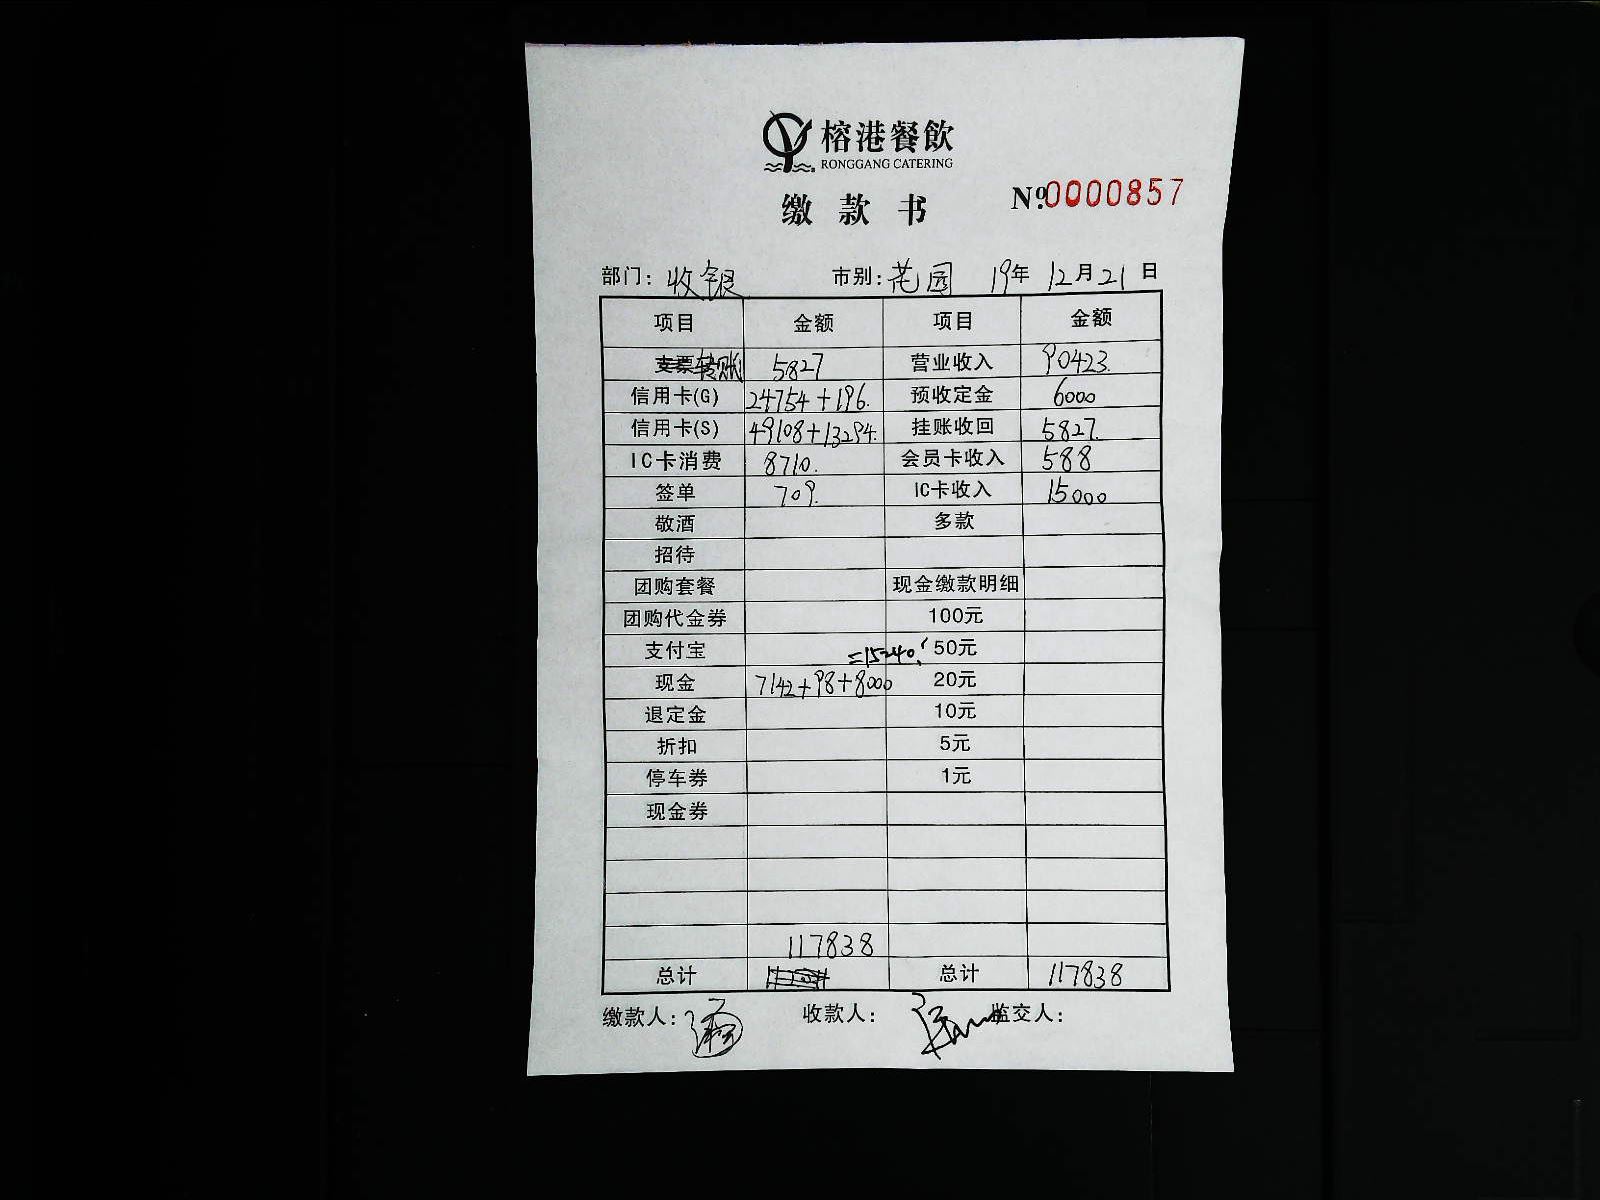 榕港餐飲
RONGGANG CATERING
缴款书
№.0000857
部门：收银 市别：花园 19年12月21日
项目 金额 项目 金额
支票转账 5827 营业收入 90423.
信用卡(G) 24754+196. 预收定金 6000
信用卡(S) 49108+13294. 挂账收回 5827.
IC卡消费 8710. 会员卡收入 588
签单 709. IC卡收入 15000
敬酒 多款
招待
团购套餐 现金缴款明细
团购代金券 100元
支付宝 =15240. 50元
现金 7142+98+8000 20元
退定金 10元
折扣 5元
停车券 1元
现金券
117838
总计 总计 117838
缴款人： 收款人： 监交人：